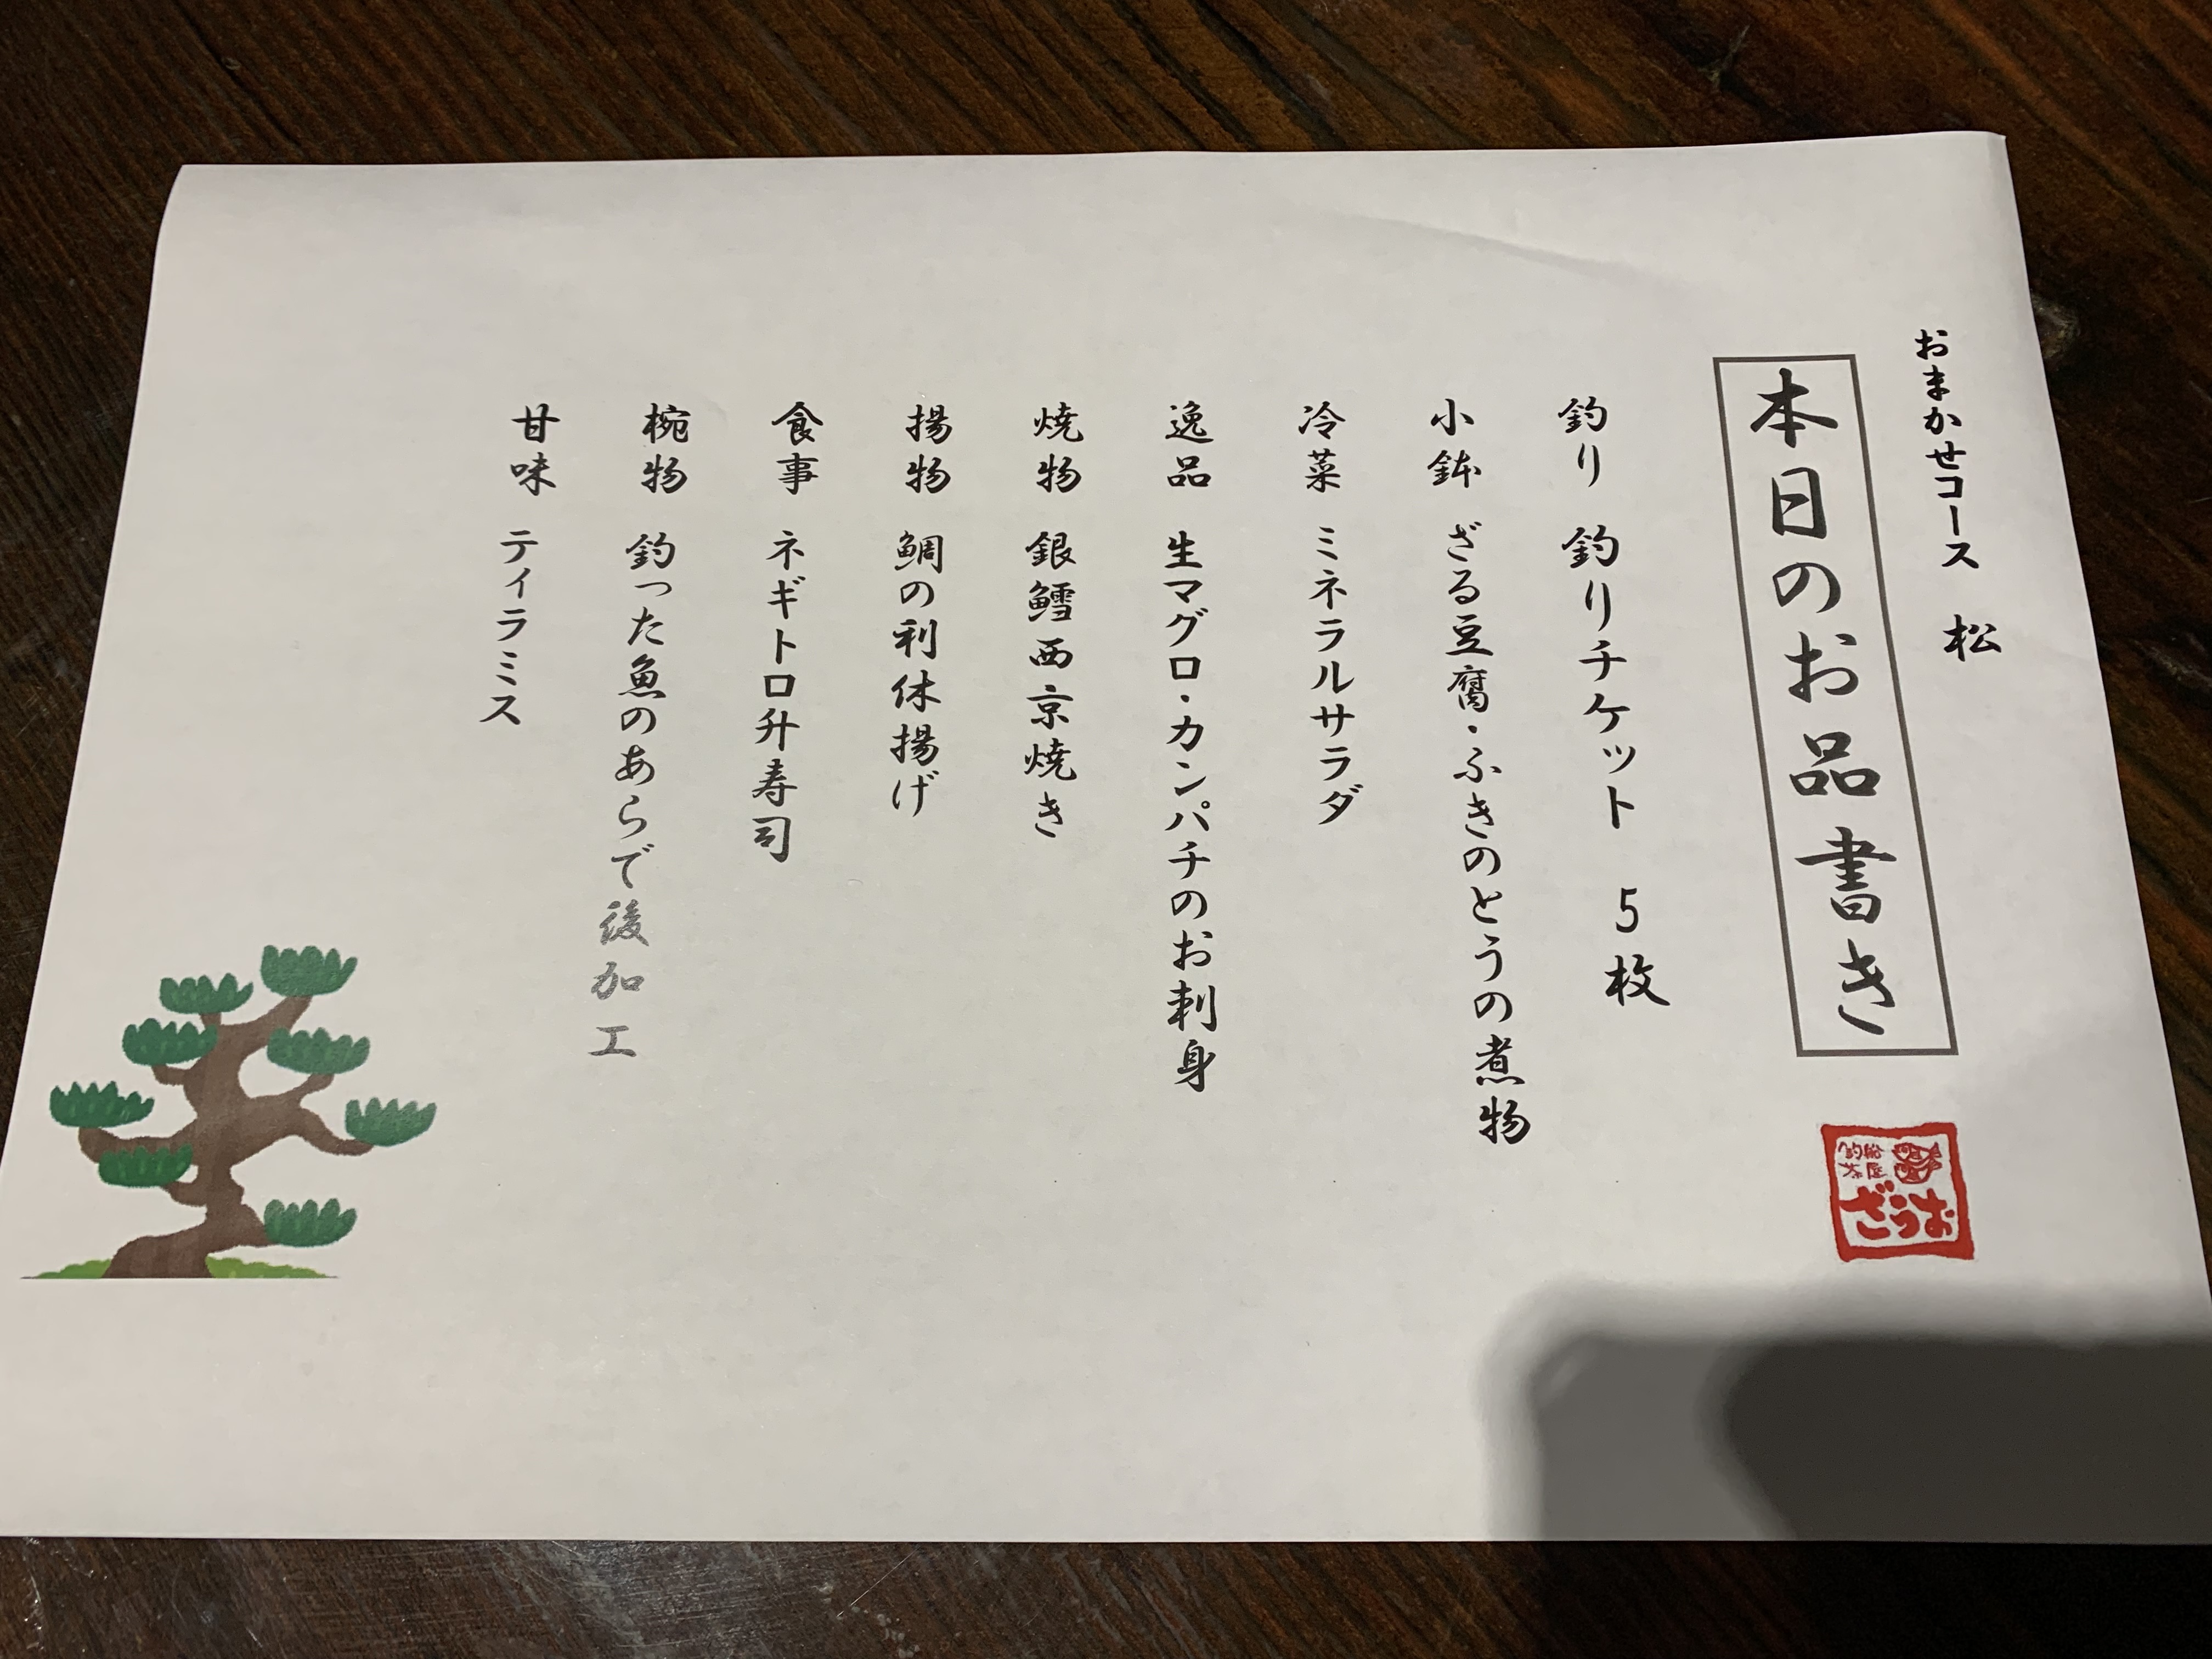 おまかせコース 松
本日のお品書き
釣船
茶屋
ざうお
釣り 釣りチケット 5枚
小鉢 ざる豆腐・ふきのとうの煮物
冷菜 ミネラルサラダ
逸品 生マグロ・カンパチのお刺身
焼物 銀鱈西京焼き
揚物 鯛の利休揚げ
食事 ネギトロ升寿司
椀物 釣った魚のあらで後加工
甘味 ティラミス